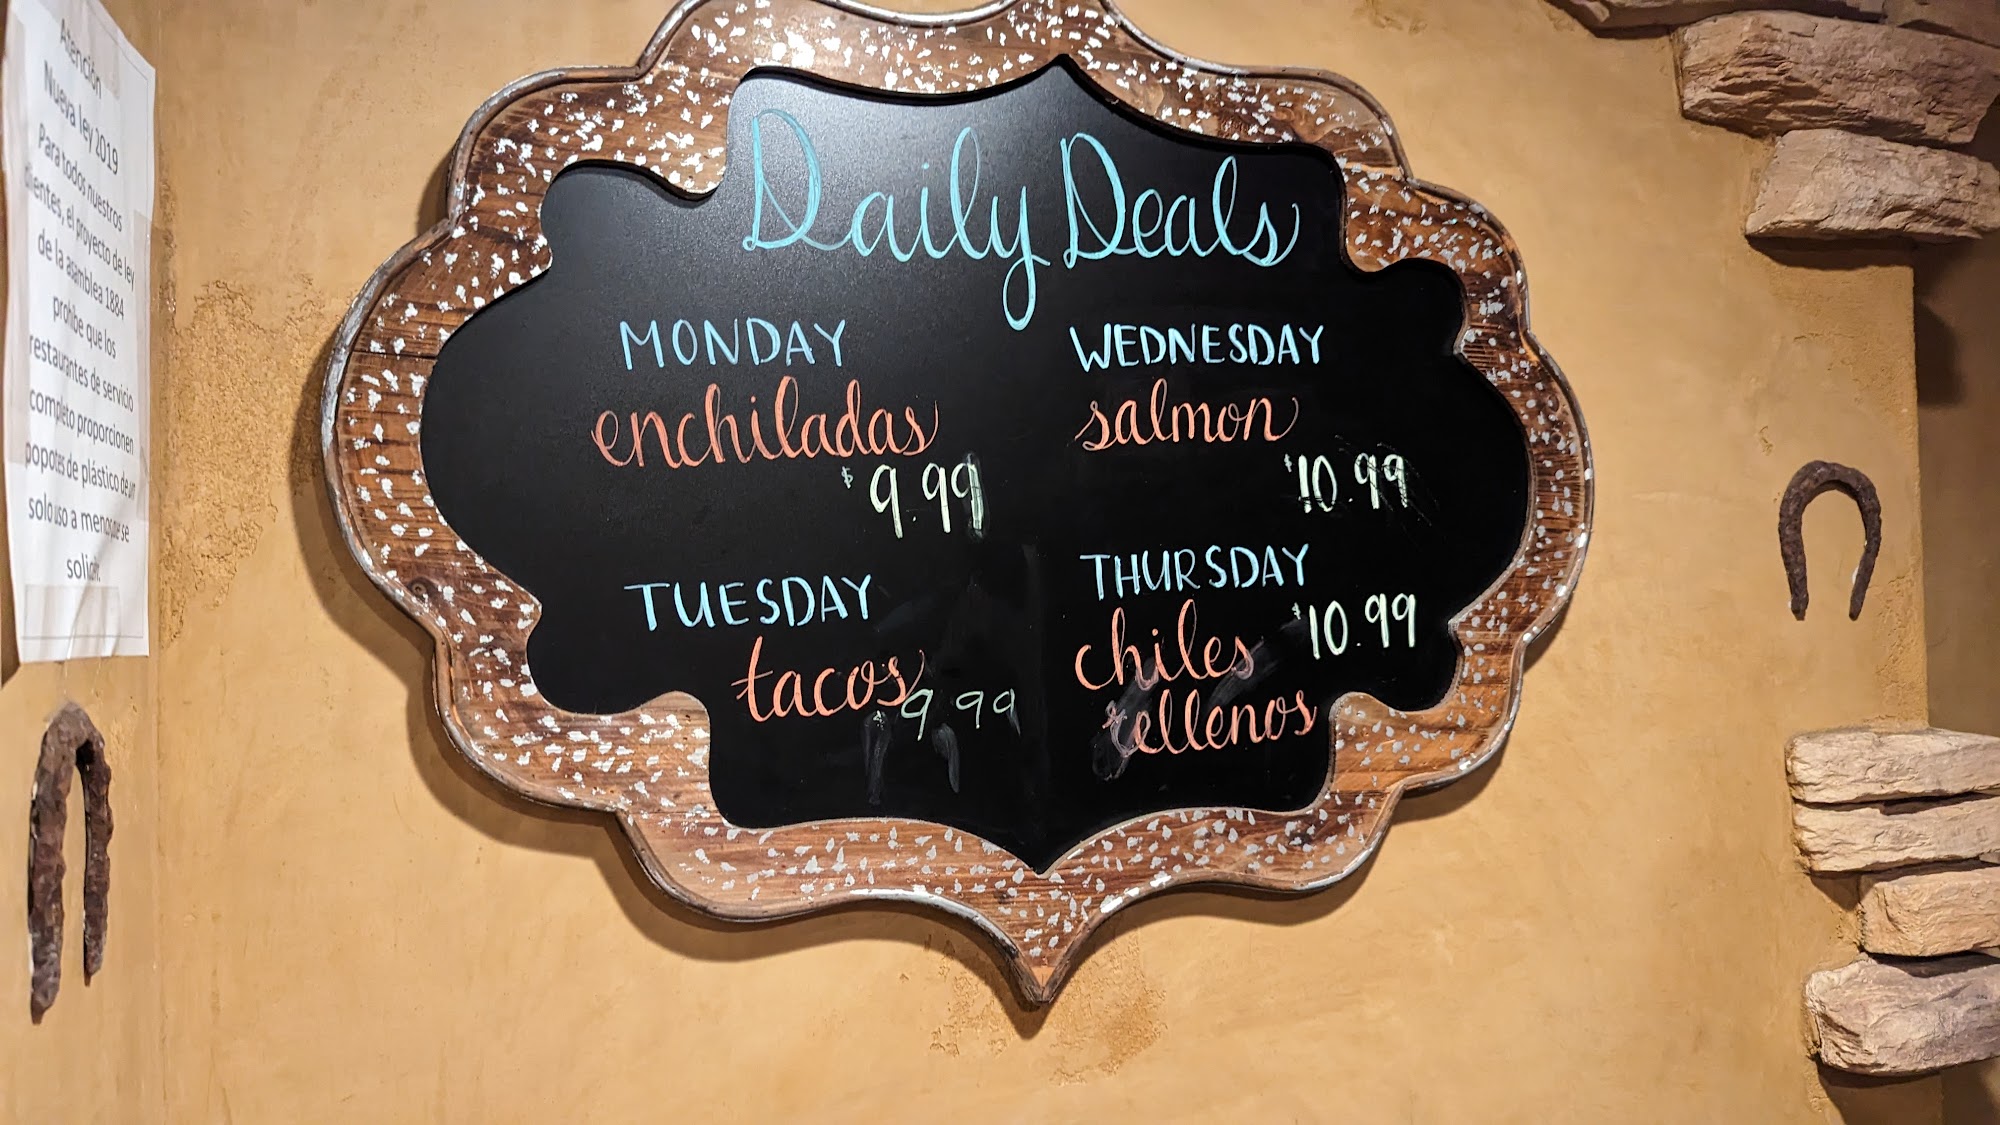 Atención
Nueva ley 2019
Para todos nuestros
clientes, el proyecto de ley
de la asamblea 1884
prohibe que los
restaurantes de servicio
completo proporcionen
popotes de plástico de un
solo uso a menos que se
solicite.
Daily Deals
MONDAY
enchiladas
$9.99
TUESDAY
tacos
$9.99
WEDNESDAY
salmon
$10.99
THURSDAY
chiles $10.99
rellenos